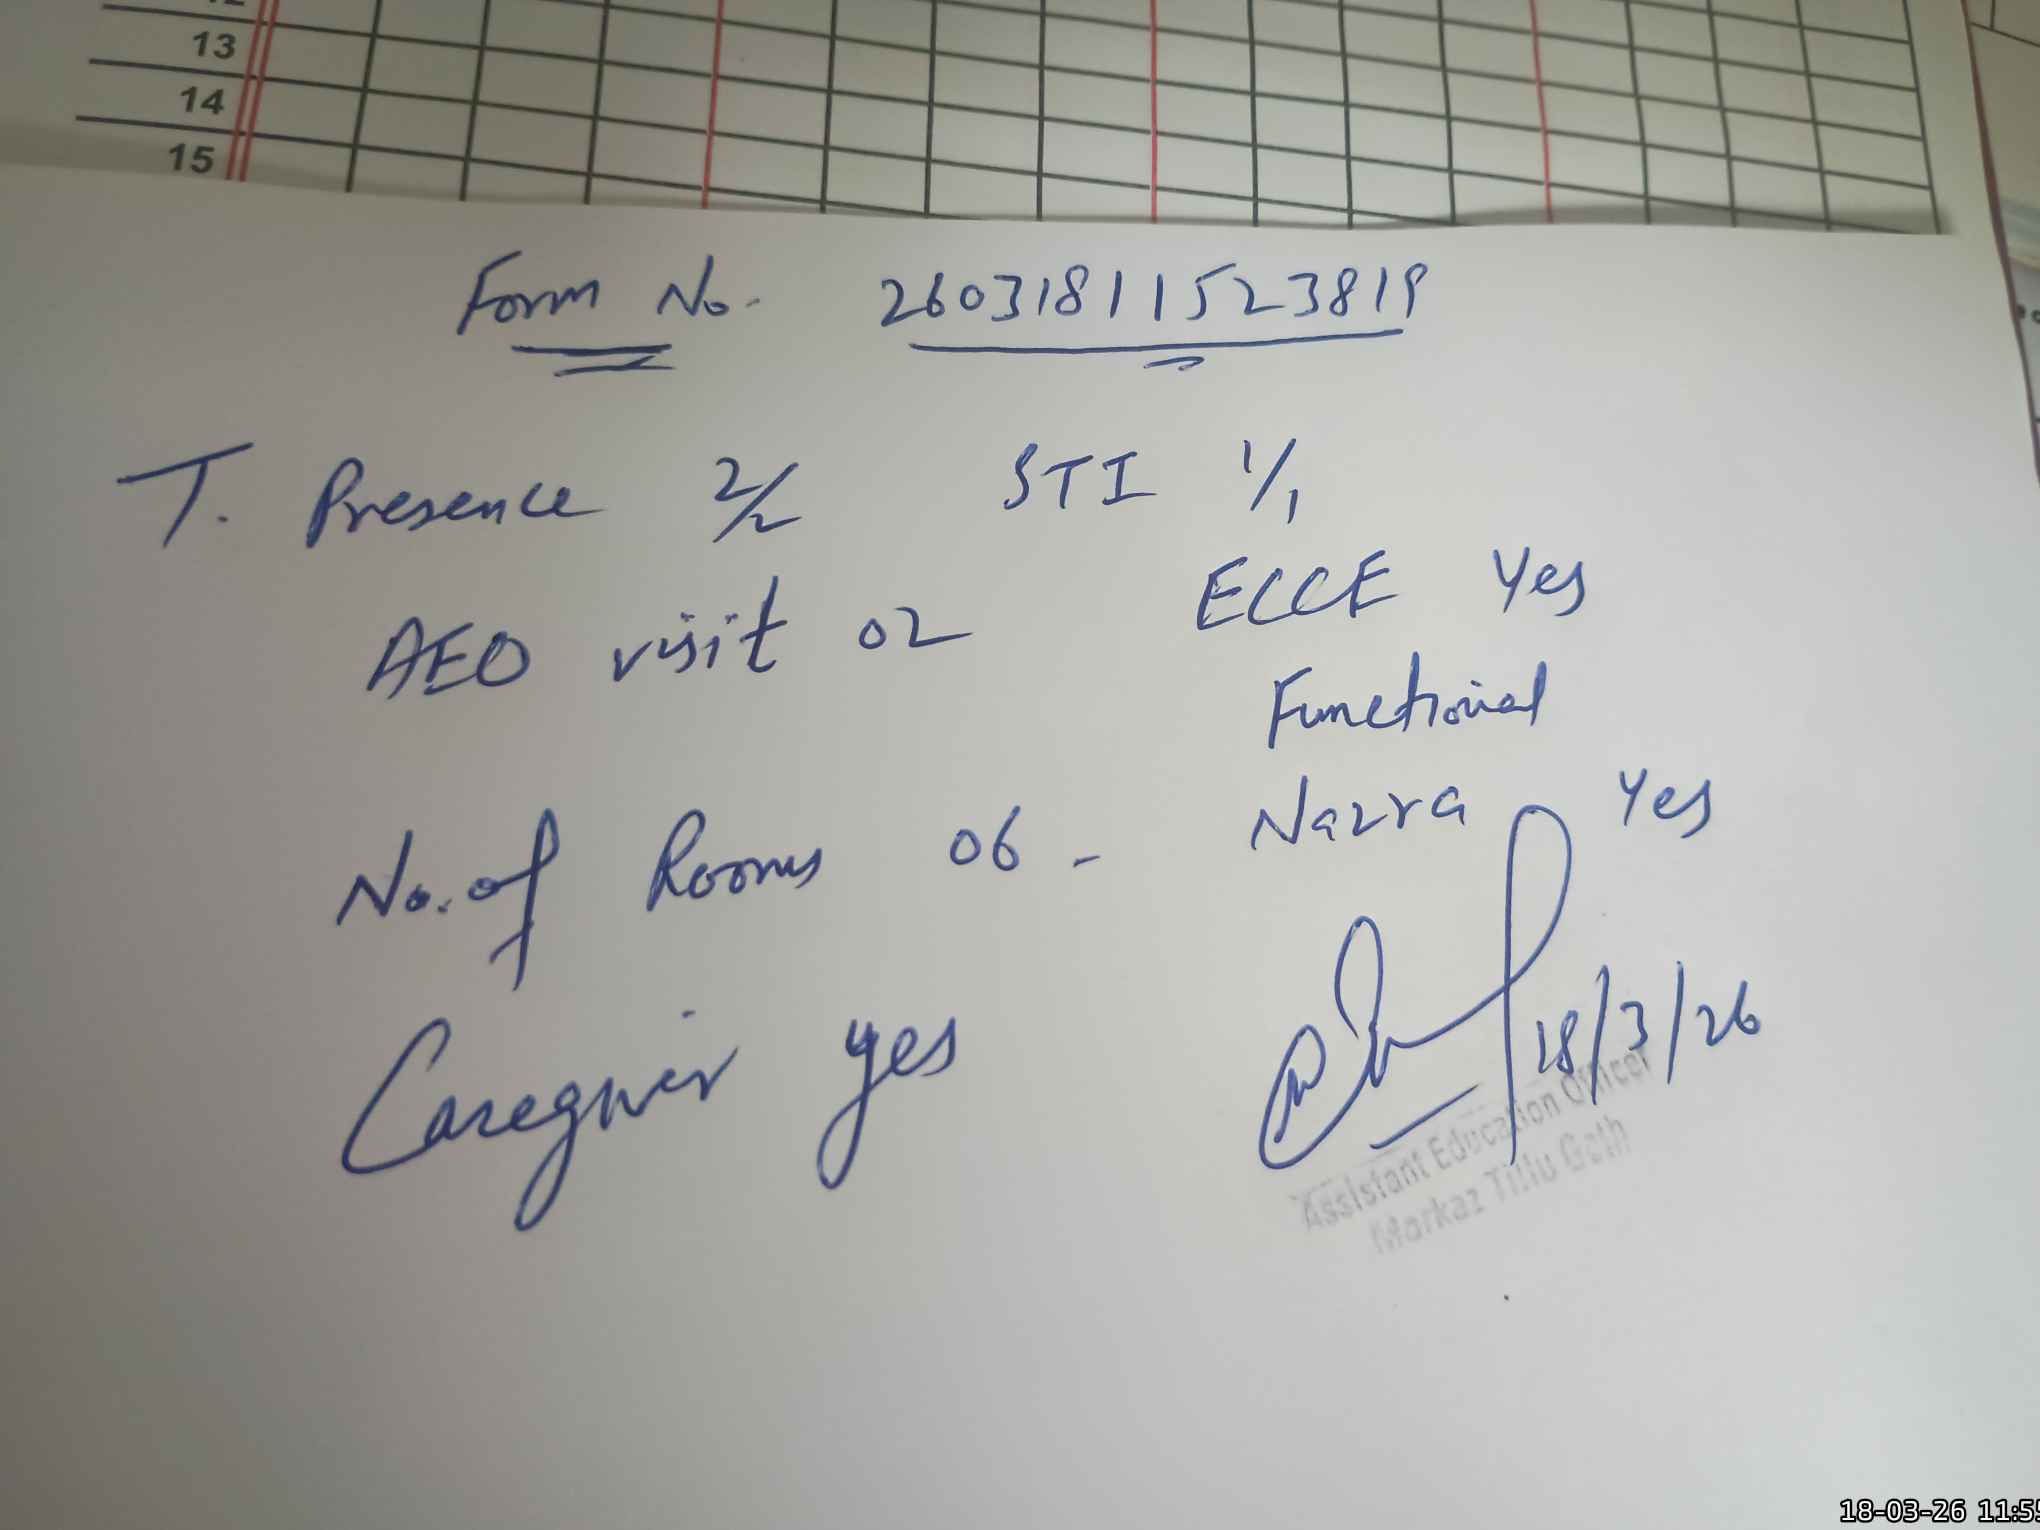 13
14
15
Form No. 26031811523819
T. Presence 2/2 STI 1/1
AEO visit 02 ECCE Yes
Functional
No. of Rooms 06 - Nazra Yes
Caregiver yes
18/3/26
Assistant Education Officer
Markaz Tillu Goth
18-03-26 11:55